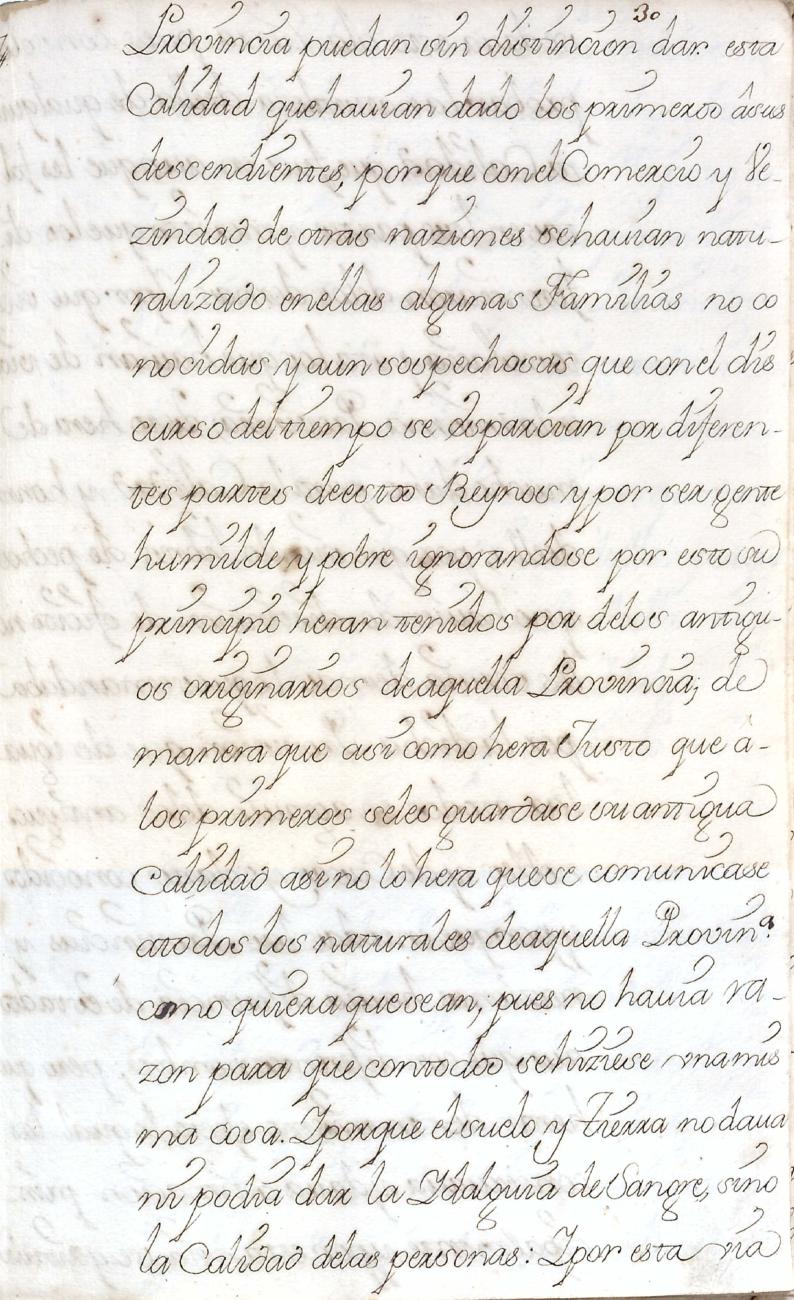 30
Provincia puedan sin distincion dar esta
Calidad que havian dado los primeros âsus
descendientes, porque conel Comercio y Ve-
zindad de otras naziones sehavian natu-
ralizado enellas algunas Familias no co
nocidas y aun sospechosas que con el dis
curso del tiempo se esparcian por diferen-
tes partes deestos Reynos y por ser gente
humilde y pobre ignorandose por esto su
principio heran tenidos por delos antigu-
os originarios deaquella Provincia; de
manera que asi como hera Justo que â-
los primeros seles guardase su antigua
Calidad asi no lo hera quese comunicase
atodos los naturales deaquella Provinª.
como quiera que sean, pues no havia ra-
zon para que contodos sehiziese vna mis
ma cosa. Yporque el suelo y tierra no dava
ni podia dar la Ydalguia de Sangre, sino
la Calidad delas personas: Ypor esta via